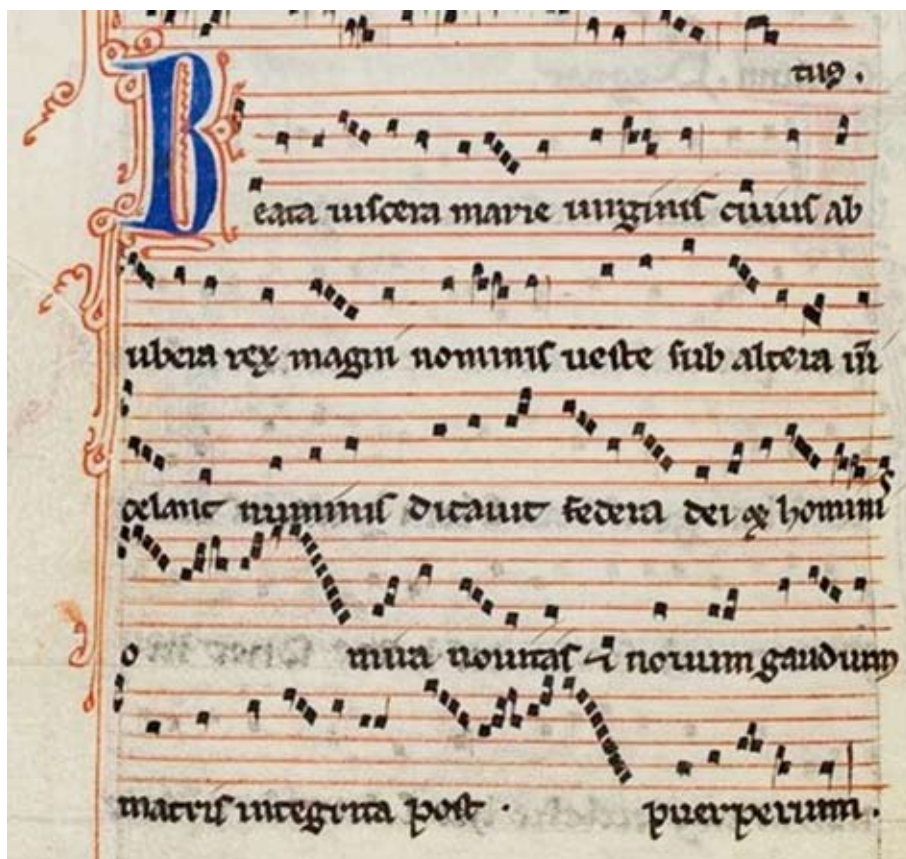 tus.
Beata viscera marie virginis cuius ab
ubera rex magni nominis veste sub altera
celavit numinis dictavit federa dei & hominis
o mira novitas & novum gaudium
matris integrita post. puerperium.